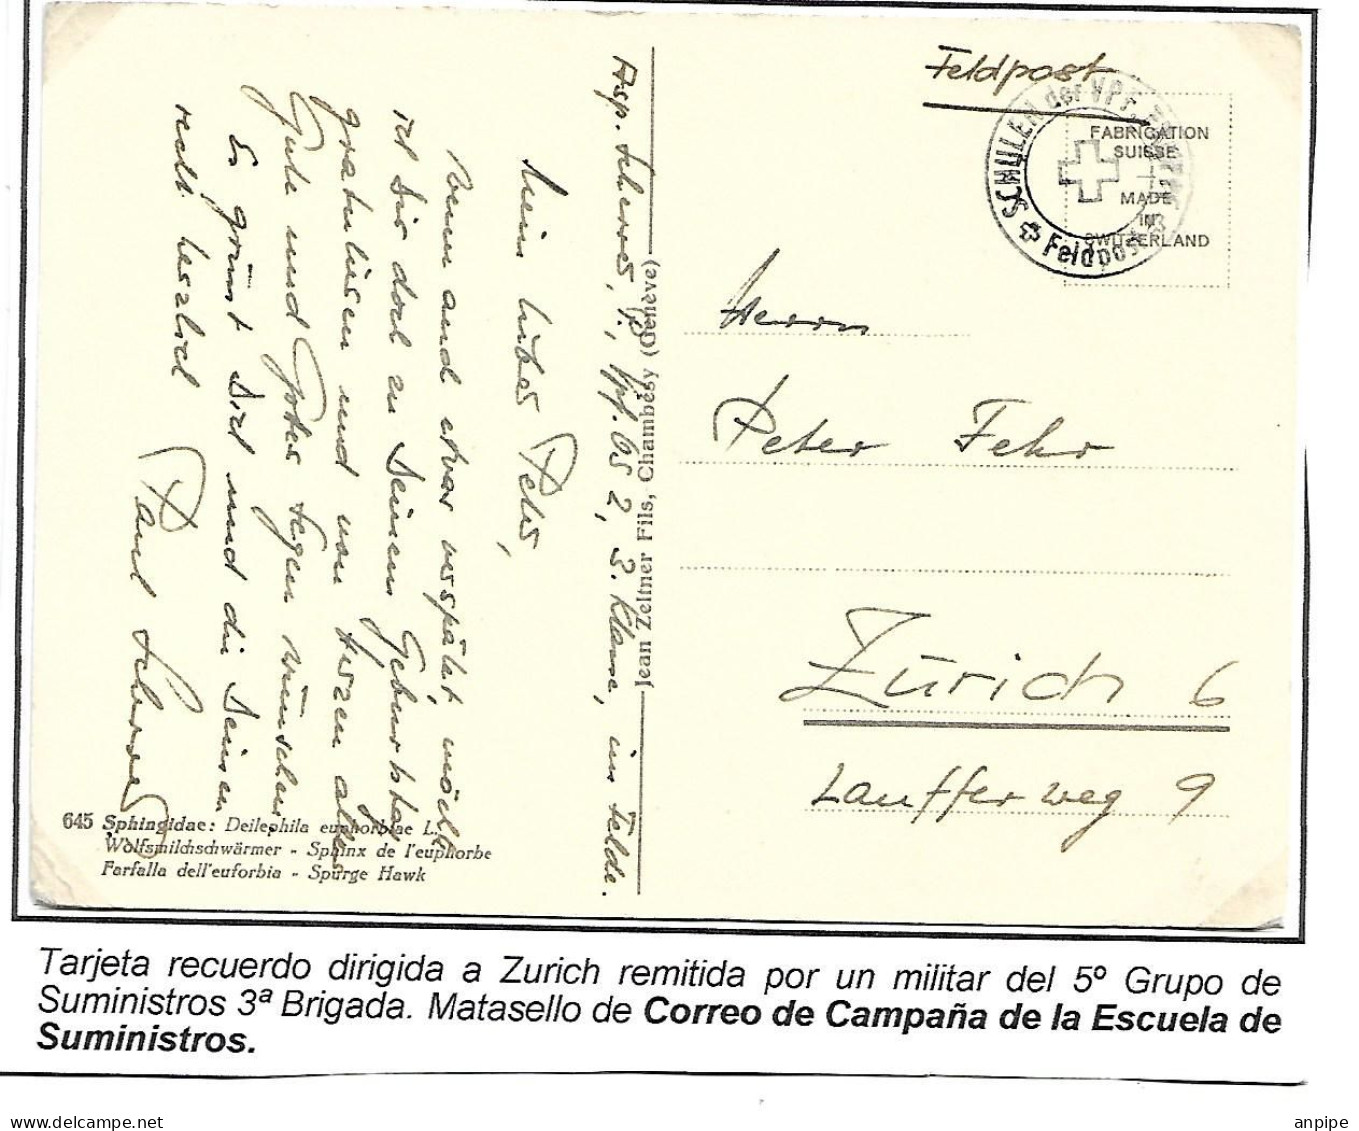 Feldpost
SCHULEN der VPf. TRUPPEN
Feldpost
FABRICATION
SUISSE
MADE
IN
SWITZERLAND
Herrn
Peter Fehr
Zürich 6
Laufferweg 9
Asp. Scherrer, P., Vpf. OS 2, 3. Klasse, im Felde.
Mein lieber Peter,
Wenn auch etwas verspätet, möcht
ich Dir doch zu Deinem Geburtstag
gratulieren und von Herzen alles
Gute und Gottes Segen wünschen.
Es grüsst Dich und die Deinen
recht herzlich
Paul Scherrer
Jean Zeltner Fils, Chambésy (Genève)
645 Sphingidae: Deilephila euphorbiae L.
Wolfsmilchschwärmer - Sphinx de l'euphorbe
Farfalla dell'euforbia - Spurge Hawk
Tarjeta recuerdo dirigida a Zurich remitida por un militar del 5º Grupo de
Suministros 3ª Brigada. Matasello de Correo de Campaña de la Escuela de
Suministros.
www.delcampe.net
anpipe